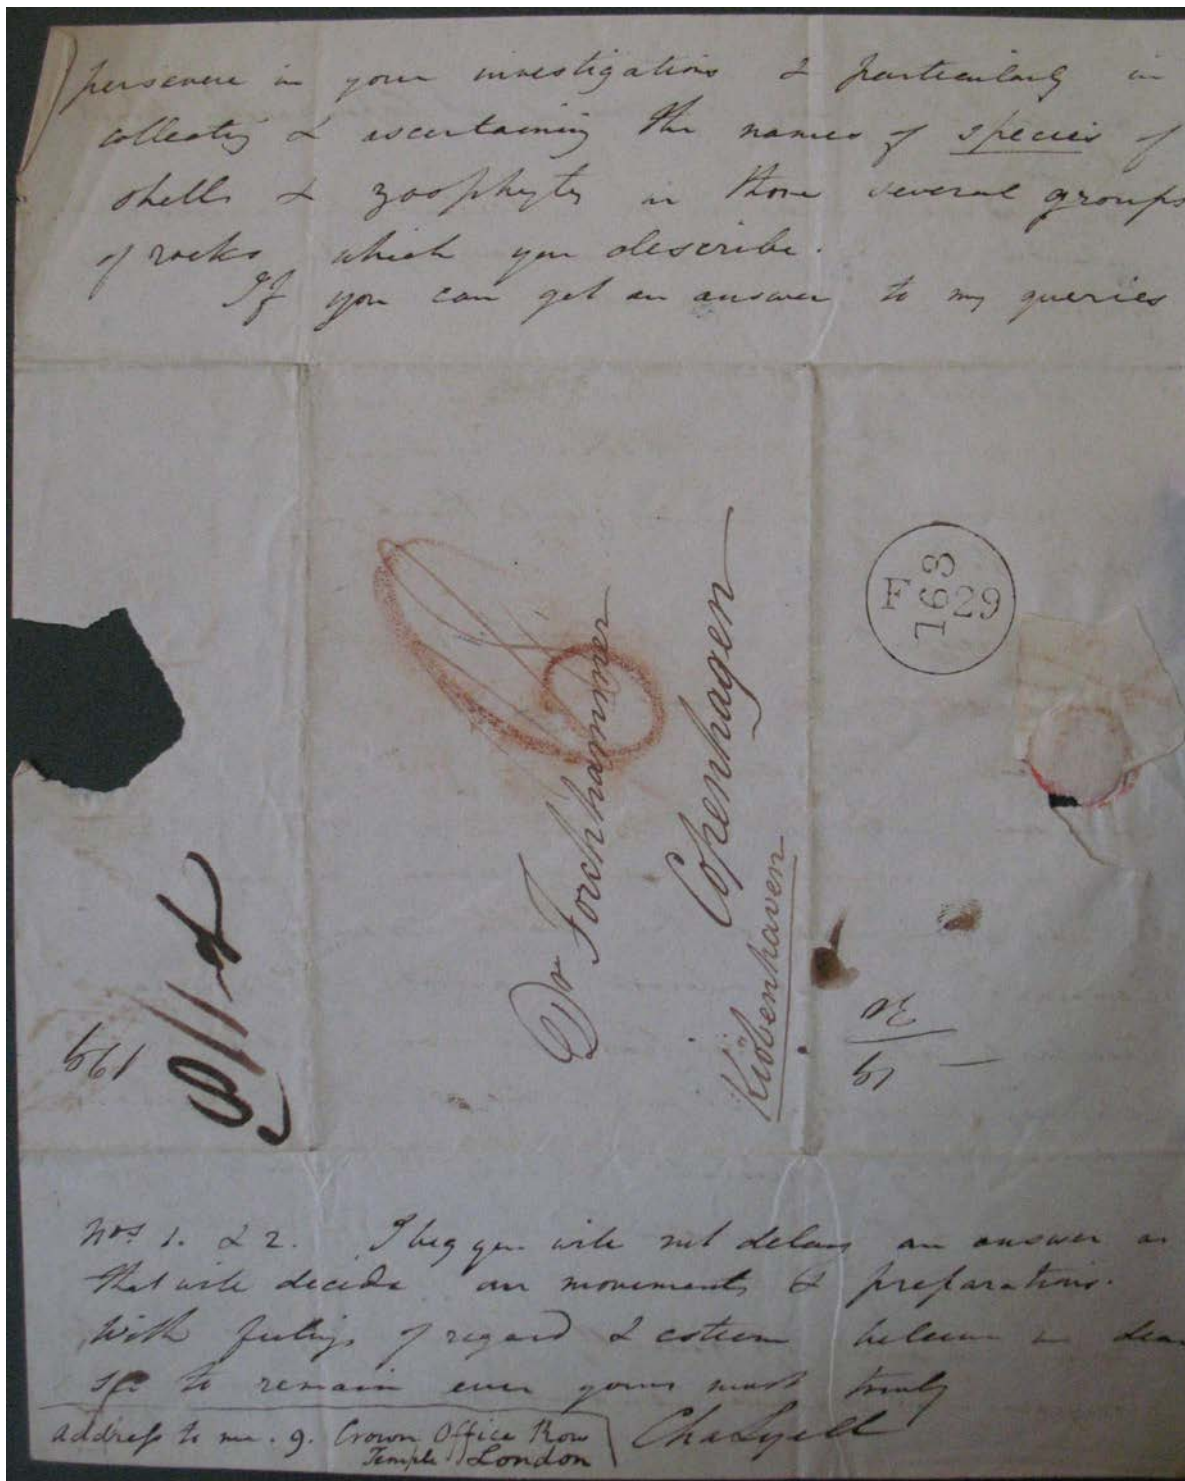 persevere in your investigations & particularly in
collecting & ascertaining the names of species of
shells & zoophytes in those several groups
of rocks which you describe.
If you can get an answer to my queries
Dr Forchhammer
Copenhagen
Kiöbenhaven
F
29
199
Nos 1. & 2. I beg you will not delay an answer as
that will decide our movements & preparations.
With feelings of regard & esteem believe me dear
Sir to remain ever yours most truly
Cha Lyell
address to me. 9. Crown Office Row
Temple London